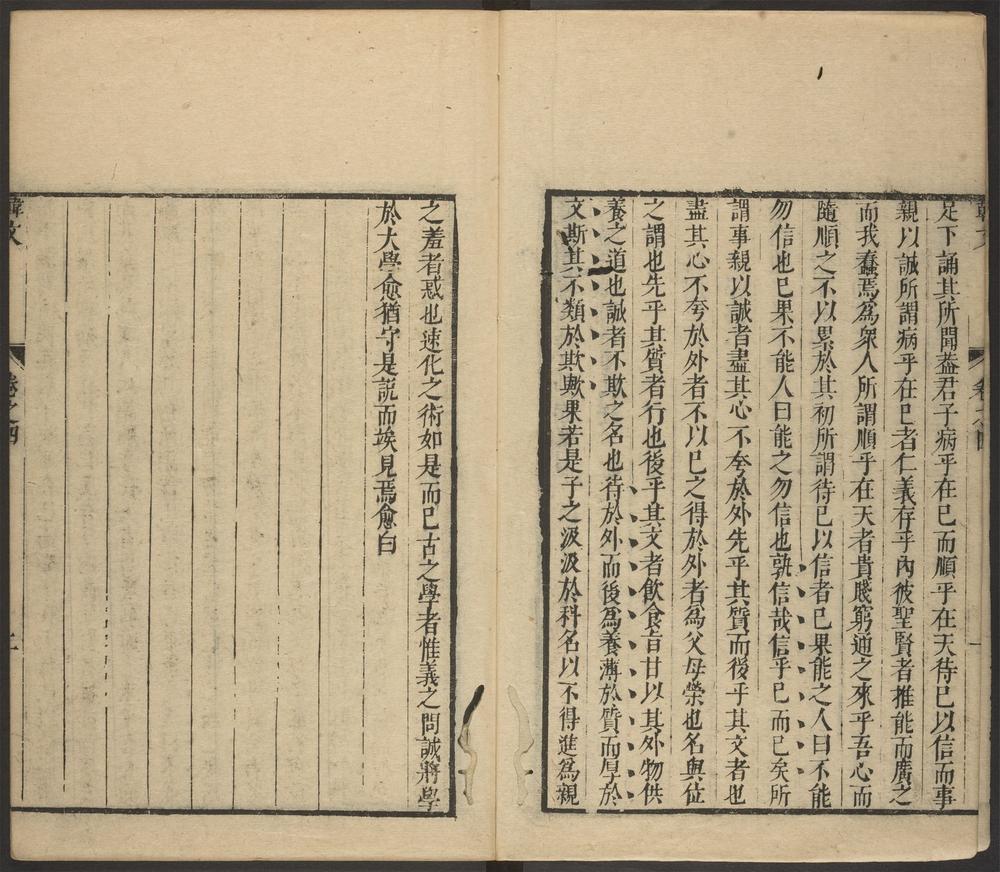 韓文
卷之四
足下誦其所聞葢君子病乎在己而順乎在天待己以信而事
親以誠所謂病乎在己者仁義存乎內彼聖賢者推能而廣之
而我蠢焉為衆人所謂順乎在天者貴賤窮通之來乎吾心而
隨順之不以累於其初所謂待己以信者己果能之人曰不能
勿信也己果不能人曰能之勿信也孰信哉信乎己而已矣所
謂事親以誠者盡其心不夸於外先乎其質而後乎其文者也
盡其心不夸於外者不以己之得於外者為父母榮也名與位
之謂也先乎其質者行也後乎其文者飲食旨甘以其外物供
養之道也誠者不欺之名也待於外而後為養薄於質而厚於
文斯其不類於欺歟果若是子之汲汲於科名以不得進為親
之羞者惑也速化之術如是而已古之學者惟義之問誠將學
於大學愈猶守是說而竢見焉愈白
韓文
卷之四